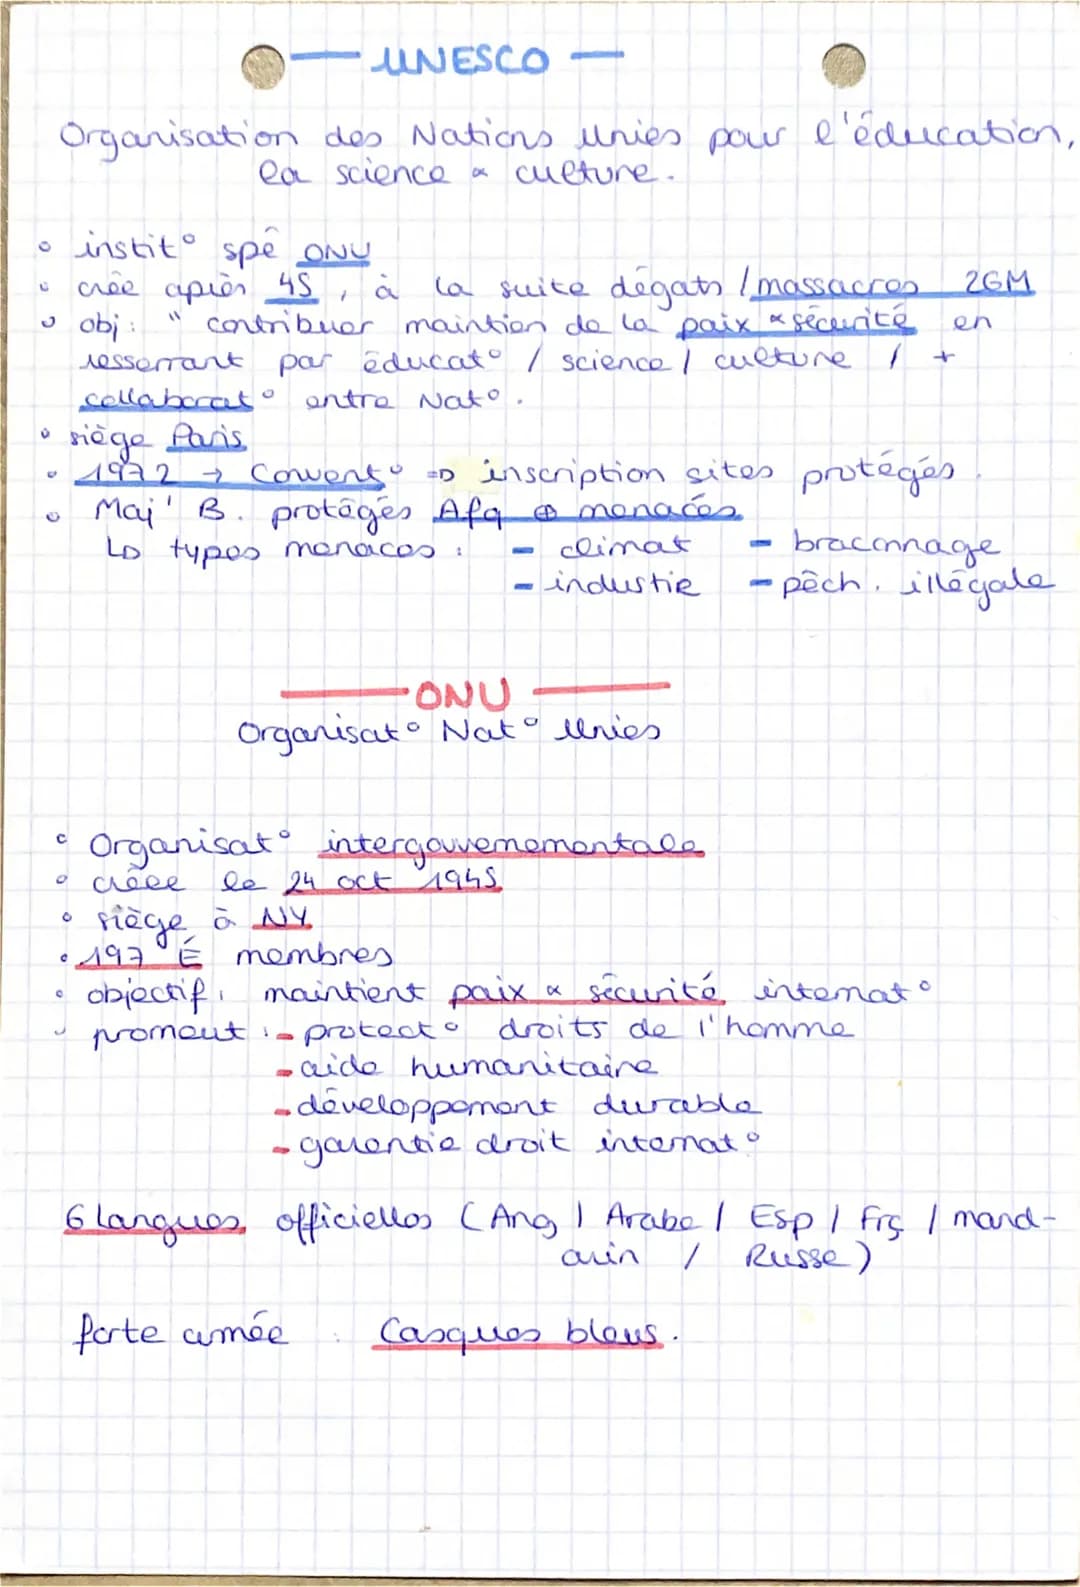 — UNESCO —
Organisation des Nations Unies pour l'éducation,
la science & culture.
• instit° spé ONU
• crée après 45, à la suite dégats / massacres 2GM
• obj : " contribuer maintien de la paix & sécurité en
resserrant par éducat° / science / culture / +
collaborat° entre Nat°.
• siège Paris
• 1972 → Convent° => inscription sites protégés.
• Maj' B. protégés Afq ⊕ menacés
↳ types menaces : - climat - braconnage
- industie - pêch. illégale
— ONU —
Organisat° Nat° Unies
• Organisat° intergouvernementale
• créée le 24 oct 1945
• siège à NY
• 197 É membres
• objectif : maintient paix & sécurité internat°
• promeut : - protect° droits de l'homme
- aide humanitaire
- développement durable
- garentie droit internat°
6 langues officielles (Ang / Arabe / Esp / Frç / mand-
arin / Russe)
forte armée : Casques bleus.